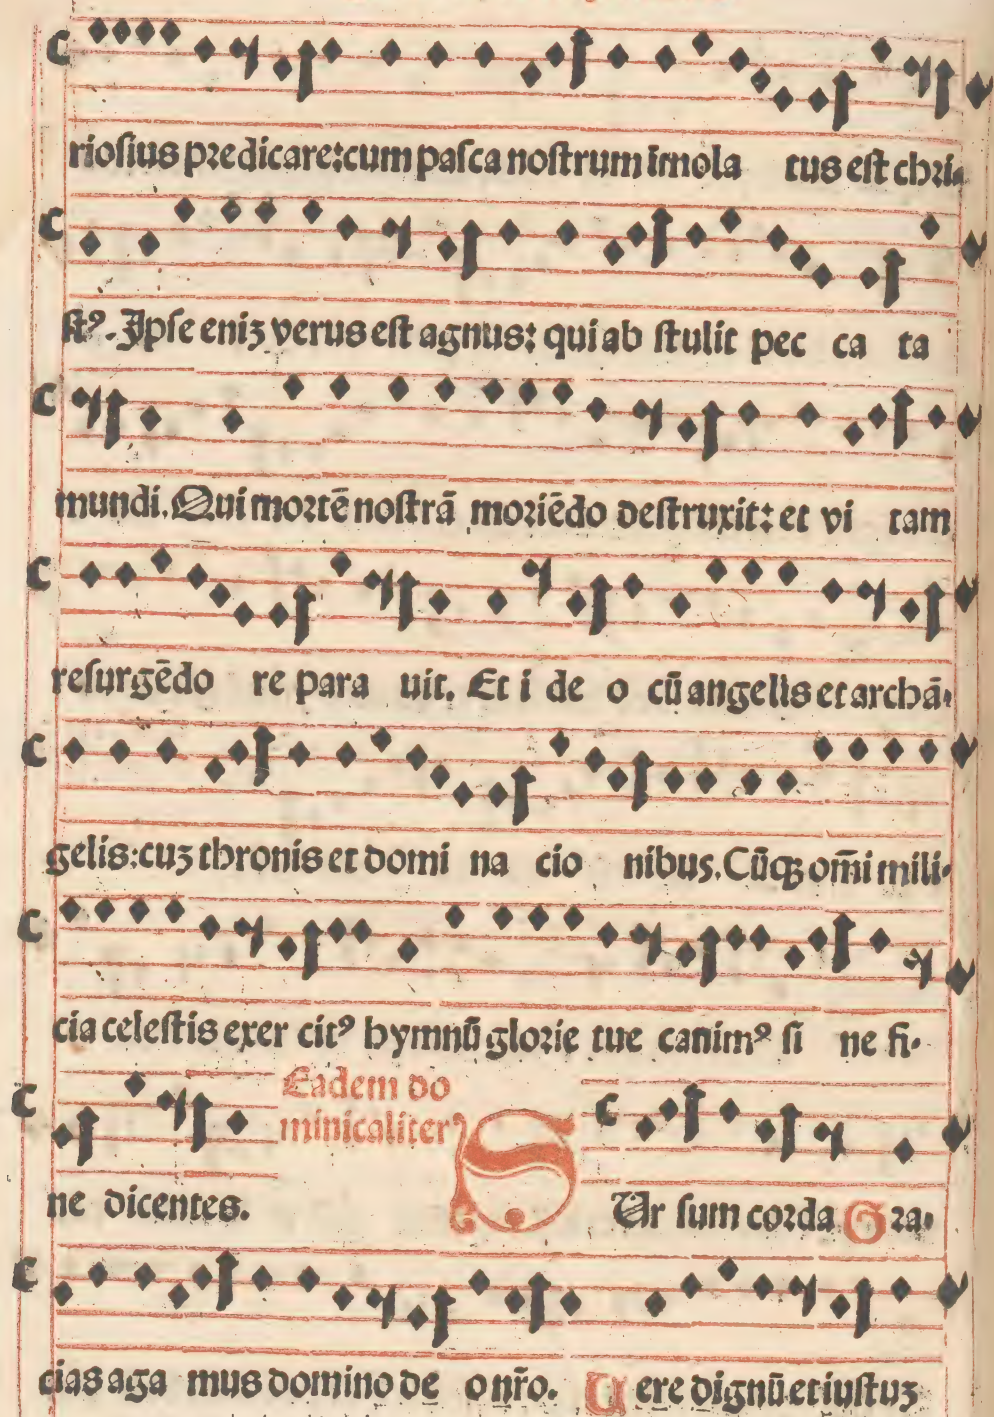 rioſius predicare:cum paſca noſtrum īmola tus eſt chri-
ſtꝰ. Ipſe eniȝ verus eſt agnus: qui ab ſtulit pec ca ta
mundi. Qui mortē noſtrā moriēdo deſtruxit: et vi tam
reſurgēdo re para uit. Et i de o cū angelis et archā-
gelis: cuȝ thronis et domi na cio nibus. Cūqȝ om̄i mili-
cia celeſtis exer citꝰ hymnū glorie tue canimꝰ ſi ne fi-
Eadem do
minicaliter
ne dicentes.
SUr ſum corda Gra-
cias aga mus domino de o nr̄o. Uere dignū et iuſtuȝ